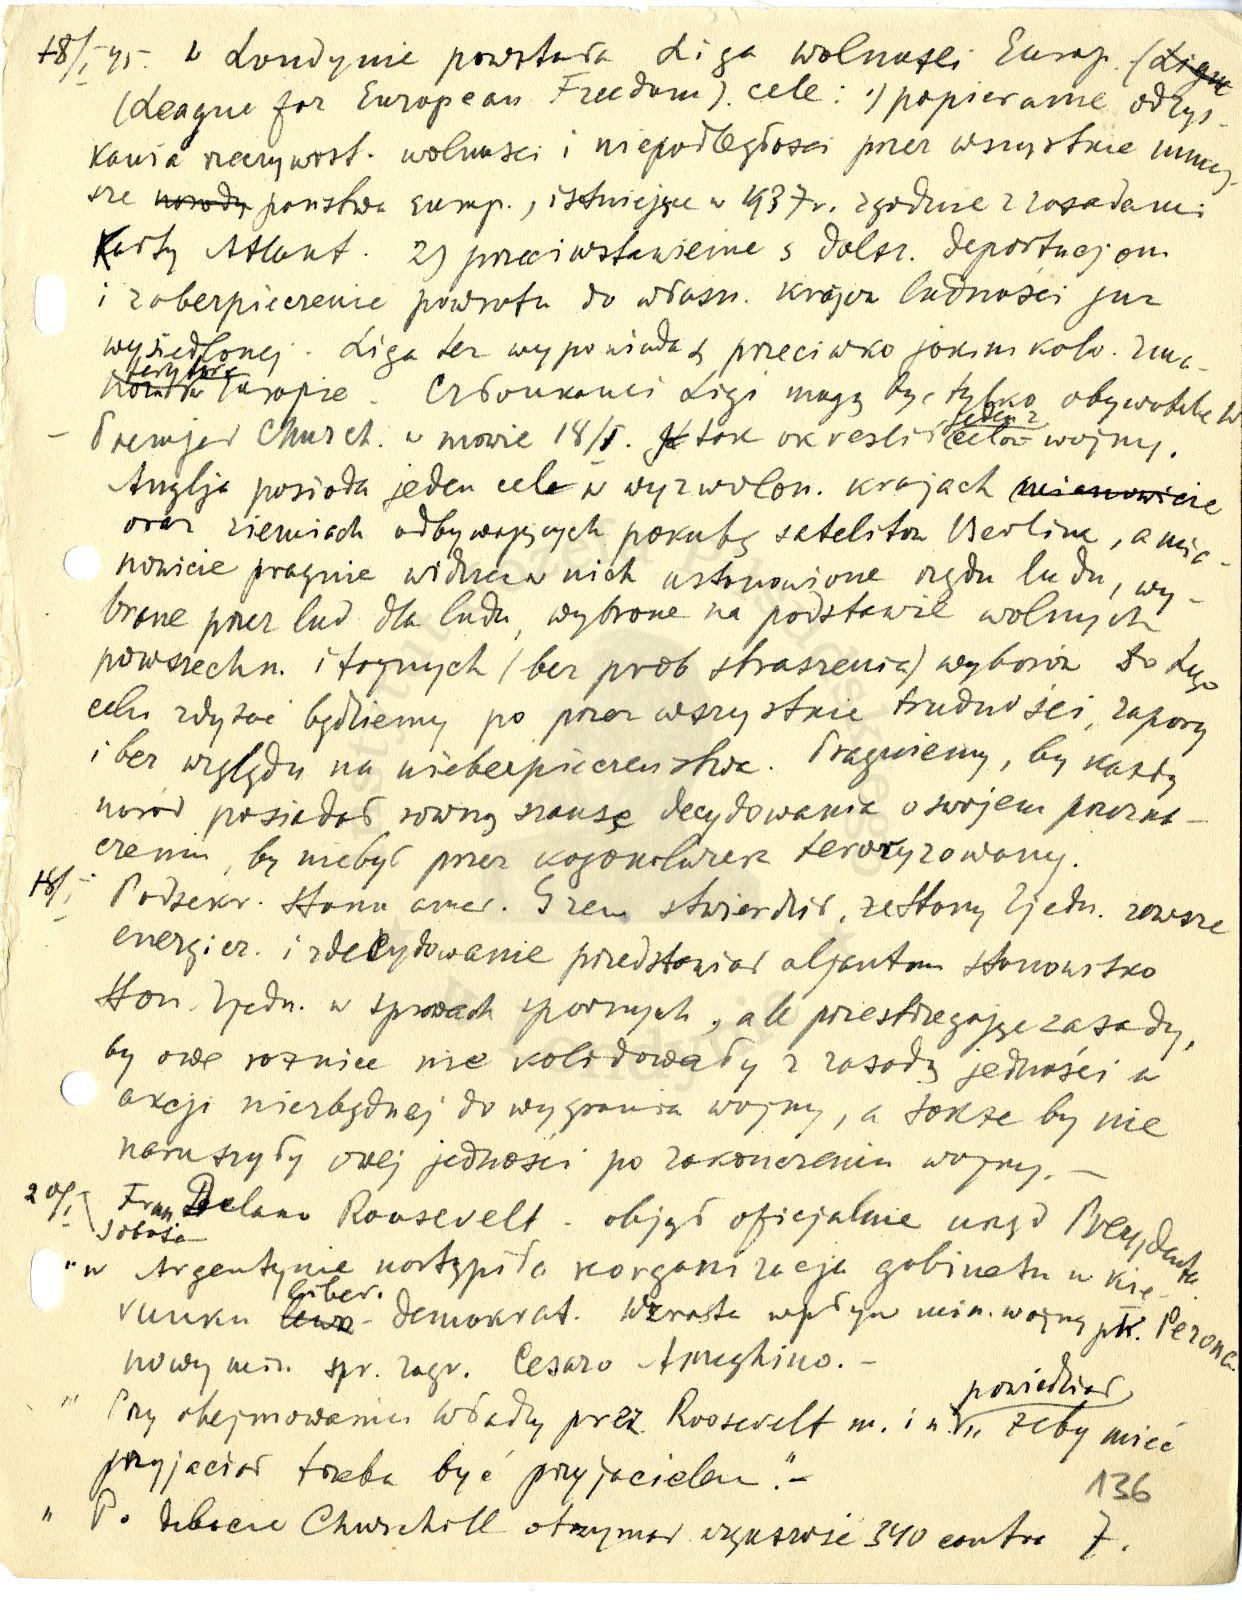 18/I 45. w Londynie powstała Liga wolności Europ. (Ligue
(League for European Freedom). cele: 1) popieranie odzys-
kania rzeczywist. wolności i niepodległości przez wszystkie mniej-
sze narody państwa europ., istniejące w 1937 r. zgodnie z zasadami
Karty Atlant. 2) przeciwstawienie s dalsz. deportacjom
i zabezpieczenie powrotu do własn. krajów ludności już
wysiedlonej. Liga też wypowiada ś przeciwko jakimkolw. zmia-
teryt. w Europie. Członkami Ligi mogą być tylko obywatele
– Premjer Church. w mowie 18/I. tak określił jeden z celów wojny.
Anglja posiada jeden cel w wyzwolon. krajach mianowicie
oraz ziemiach odbywających pokutę satelitów Berlina, a mia-
nowicie pragnie widzieć w nich ustanowione rządu ludu, wy-
brane przez lud dla ludu, wybrane na podstawie wolnych
powszechn. i tajnych (bez prób straszenia) wyborów do tego
celu zdążać będziemy po przez wszystkie trudności, zapory
i bez względu na niebezpieczeństwa. Pragniemy, by każdy
naród posiadał równą szansę decydowania o swojem przezna-
czeniu, by niebył przez kogokolwiek teroryzowany.
18/I Podsekr. Stanu amer. Grew stwierdził, że Stany Zjedn. zawsze
energicz. i zdecydowanie przedstawiał aljantom stanowisko
Stan. Zjedn. w sprawach spornych, ale przestrzegając zasady,
by owe różnice nie kolidowały z zasadą jedności w
akcji niezbędnej do wygrania wojny, a także by nie
naruszyły owej jedności po zakończeniu wojny. –
20/I sobota Fran Delano Roosevelt - objął oficjalnie urząd Prezydenta.
" w Argentynie nastąpiła reorganizacja gabinetu w kie-
runku liber. - demokrat. Wzrasta wpływ min. wojny płk. Perona
nowy min. spr. zagr. Cesaro Ameghino. –
" Przy obejmowaniu władzy przez Roosevelt m. i n. powiedział „żeby mieć
przyjaciół trzeba być przyjacielem". –
" Po debacie Churchill otrzymał większość 340 contra 7.
136